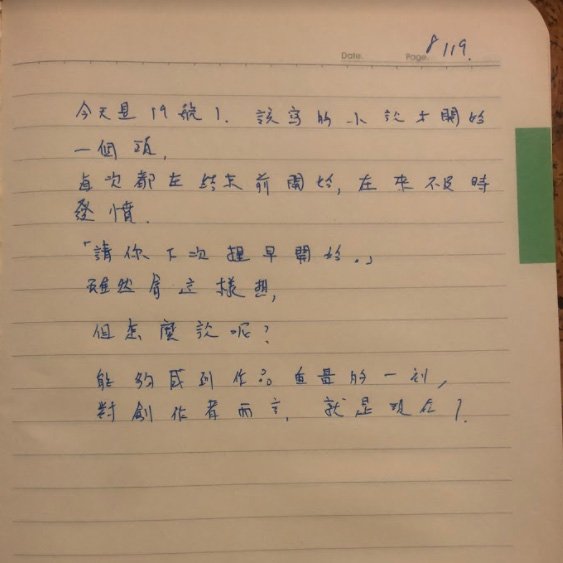 Date.
Page.
8/19.
今天是19號了. 該寫的小說才開始
一個頭,
每次都在結束前開始, 在來不及時
發憤.
「請你下次提早開始.」
雖然會這樣想,
但怎麼說呢?
能夠感到作品重量的一刻,
對創作者而言, 就是現在了.